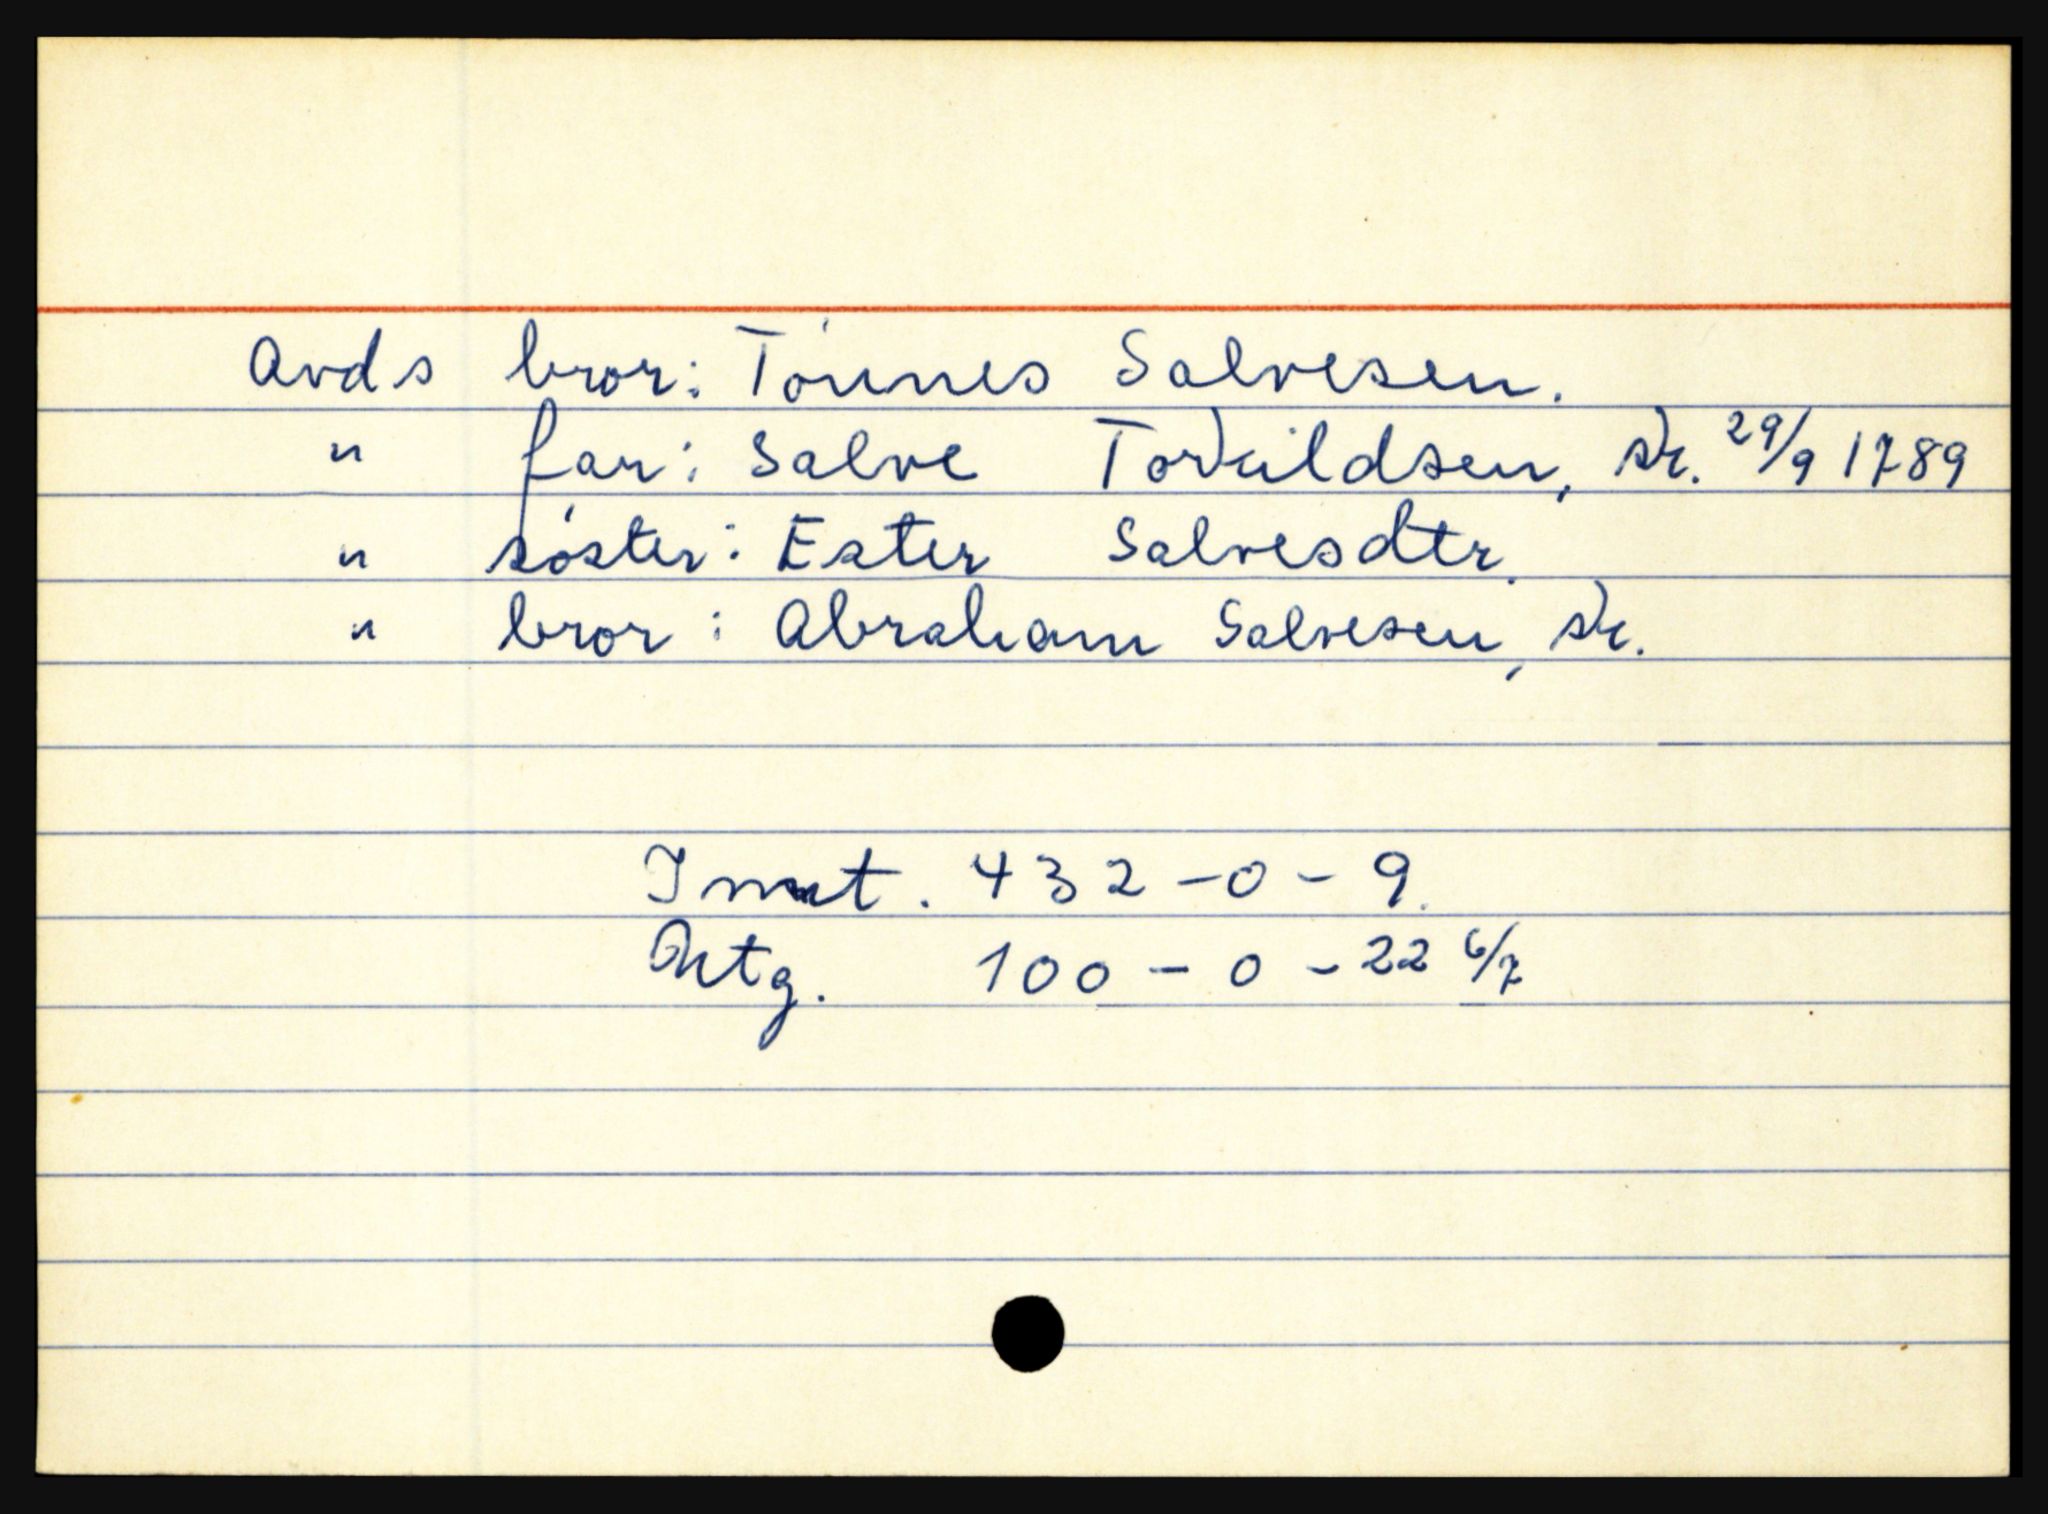 Avds bror: Tónnes Salvesen.
" far: Salve Torkildsen, sk. 29/9 1789
" sóster: Ester Salvesdtr.
" bror: Abraham Salvesen, sk.
Innt. 432-0-9.
Utg. 100-0-22 6/7